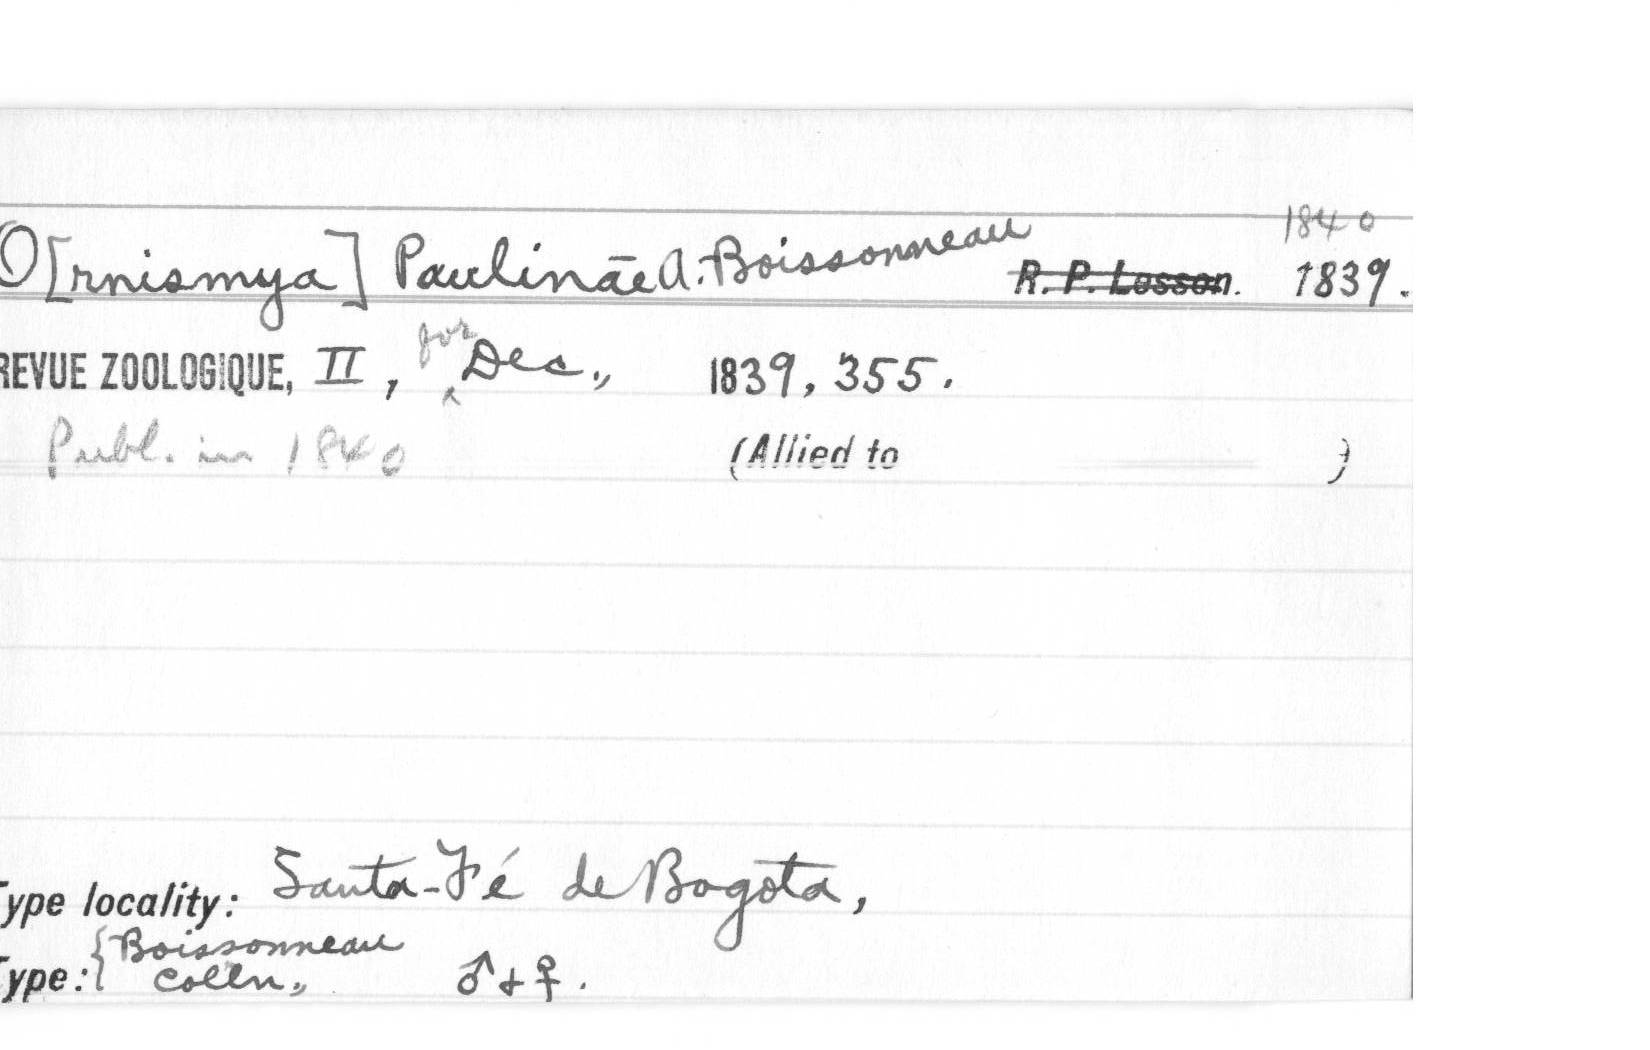 1840
O[rnismya] Paulinae A. Boissonneau R. P. Lesson. 1839.
REVUE ZOOLOGIQUE, II, for Dec., 1839, 355.
Publ. in 1840 (Allied to )
Type locality: Santa-Fé de Bogota,
Type: { Boissonneau
Colln., ♂ + ♀.